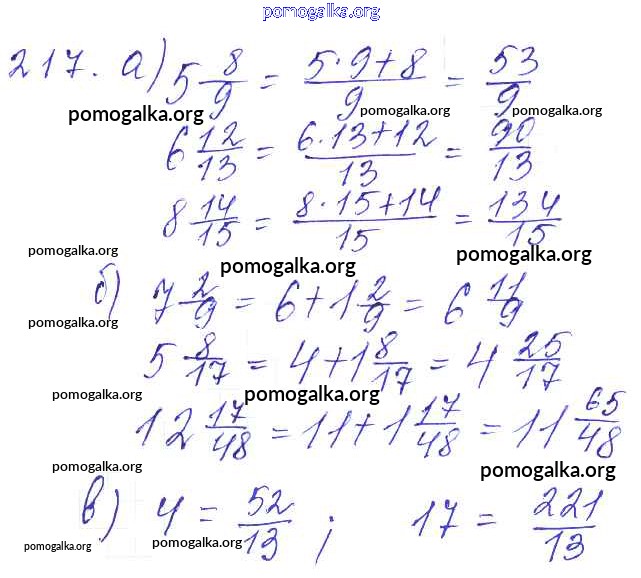 pomogalka.org
217. а) 5 8/9 = (5·9+8)/9 = 53/9
pomogalka.org pomogalka.org pomogalka.org
6 12/13 = (6·13+12)/13 = 90/13
8 14/15 = (8·15+14)/15 = 134/15
pomogalka.org pomogalka.org pomogalka.org
б) 7 2/9 = 6+1 2/9 = 6 11/9
pomogalka.org
5 8/17 = 4+1 8/17 = 4 25/17
pomogalka.org pomogalka.org
12 17/48 = 11+1 17/48 = 11 65/48
pomogalka.org pomogalka.org
в) 4 = 52/13 ; 17 = 221/13
pomogalka.org pomogalka.org pomogalka.org